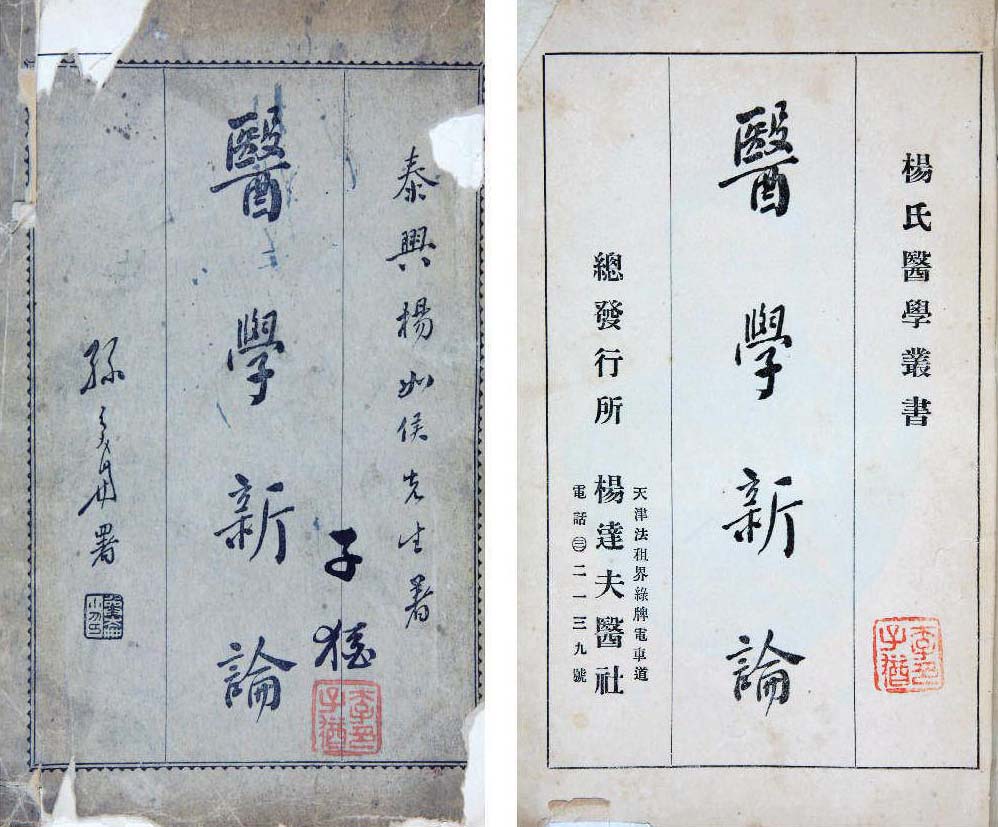 泰興楊如侯先生著
子猶
醫學新論
孫奐崙署
李印子猶
楊氏醫學叢書
李印子猶
醫學新論
天津法租界綠牌電車道
總發行所 楊達夫醫社
電話㊂二一三九號